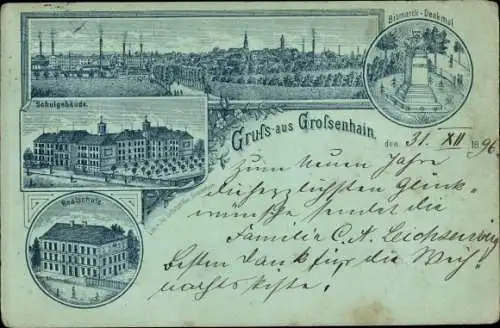 Bismarck-Denkmal
Schulgebäude.
Gruſs aus Groſsenhain.
den 31. XII 1896
Zum neuen Jahre
die herzlichsten Glück-
wünsche sendet die
Familie C. A.
Besten Dank für die Weih-
nachtskiste.
Realschule.